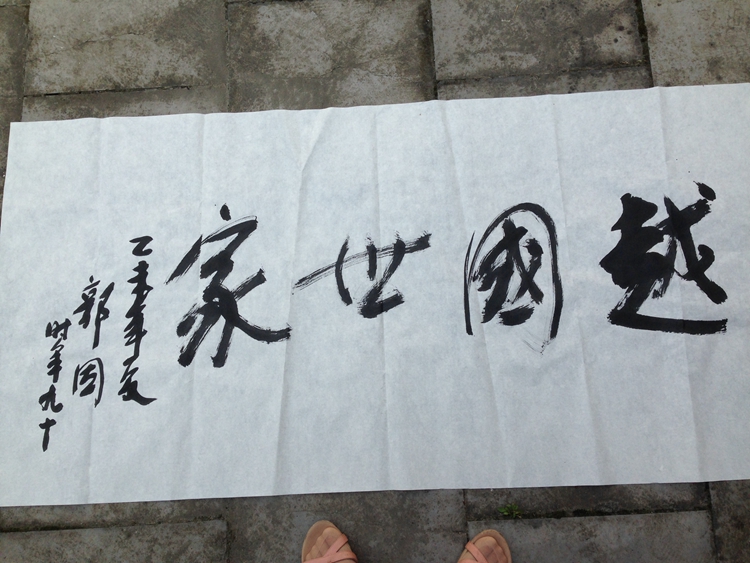 越國世家
乙未年夏
郭因
时年九十